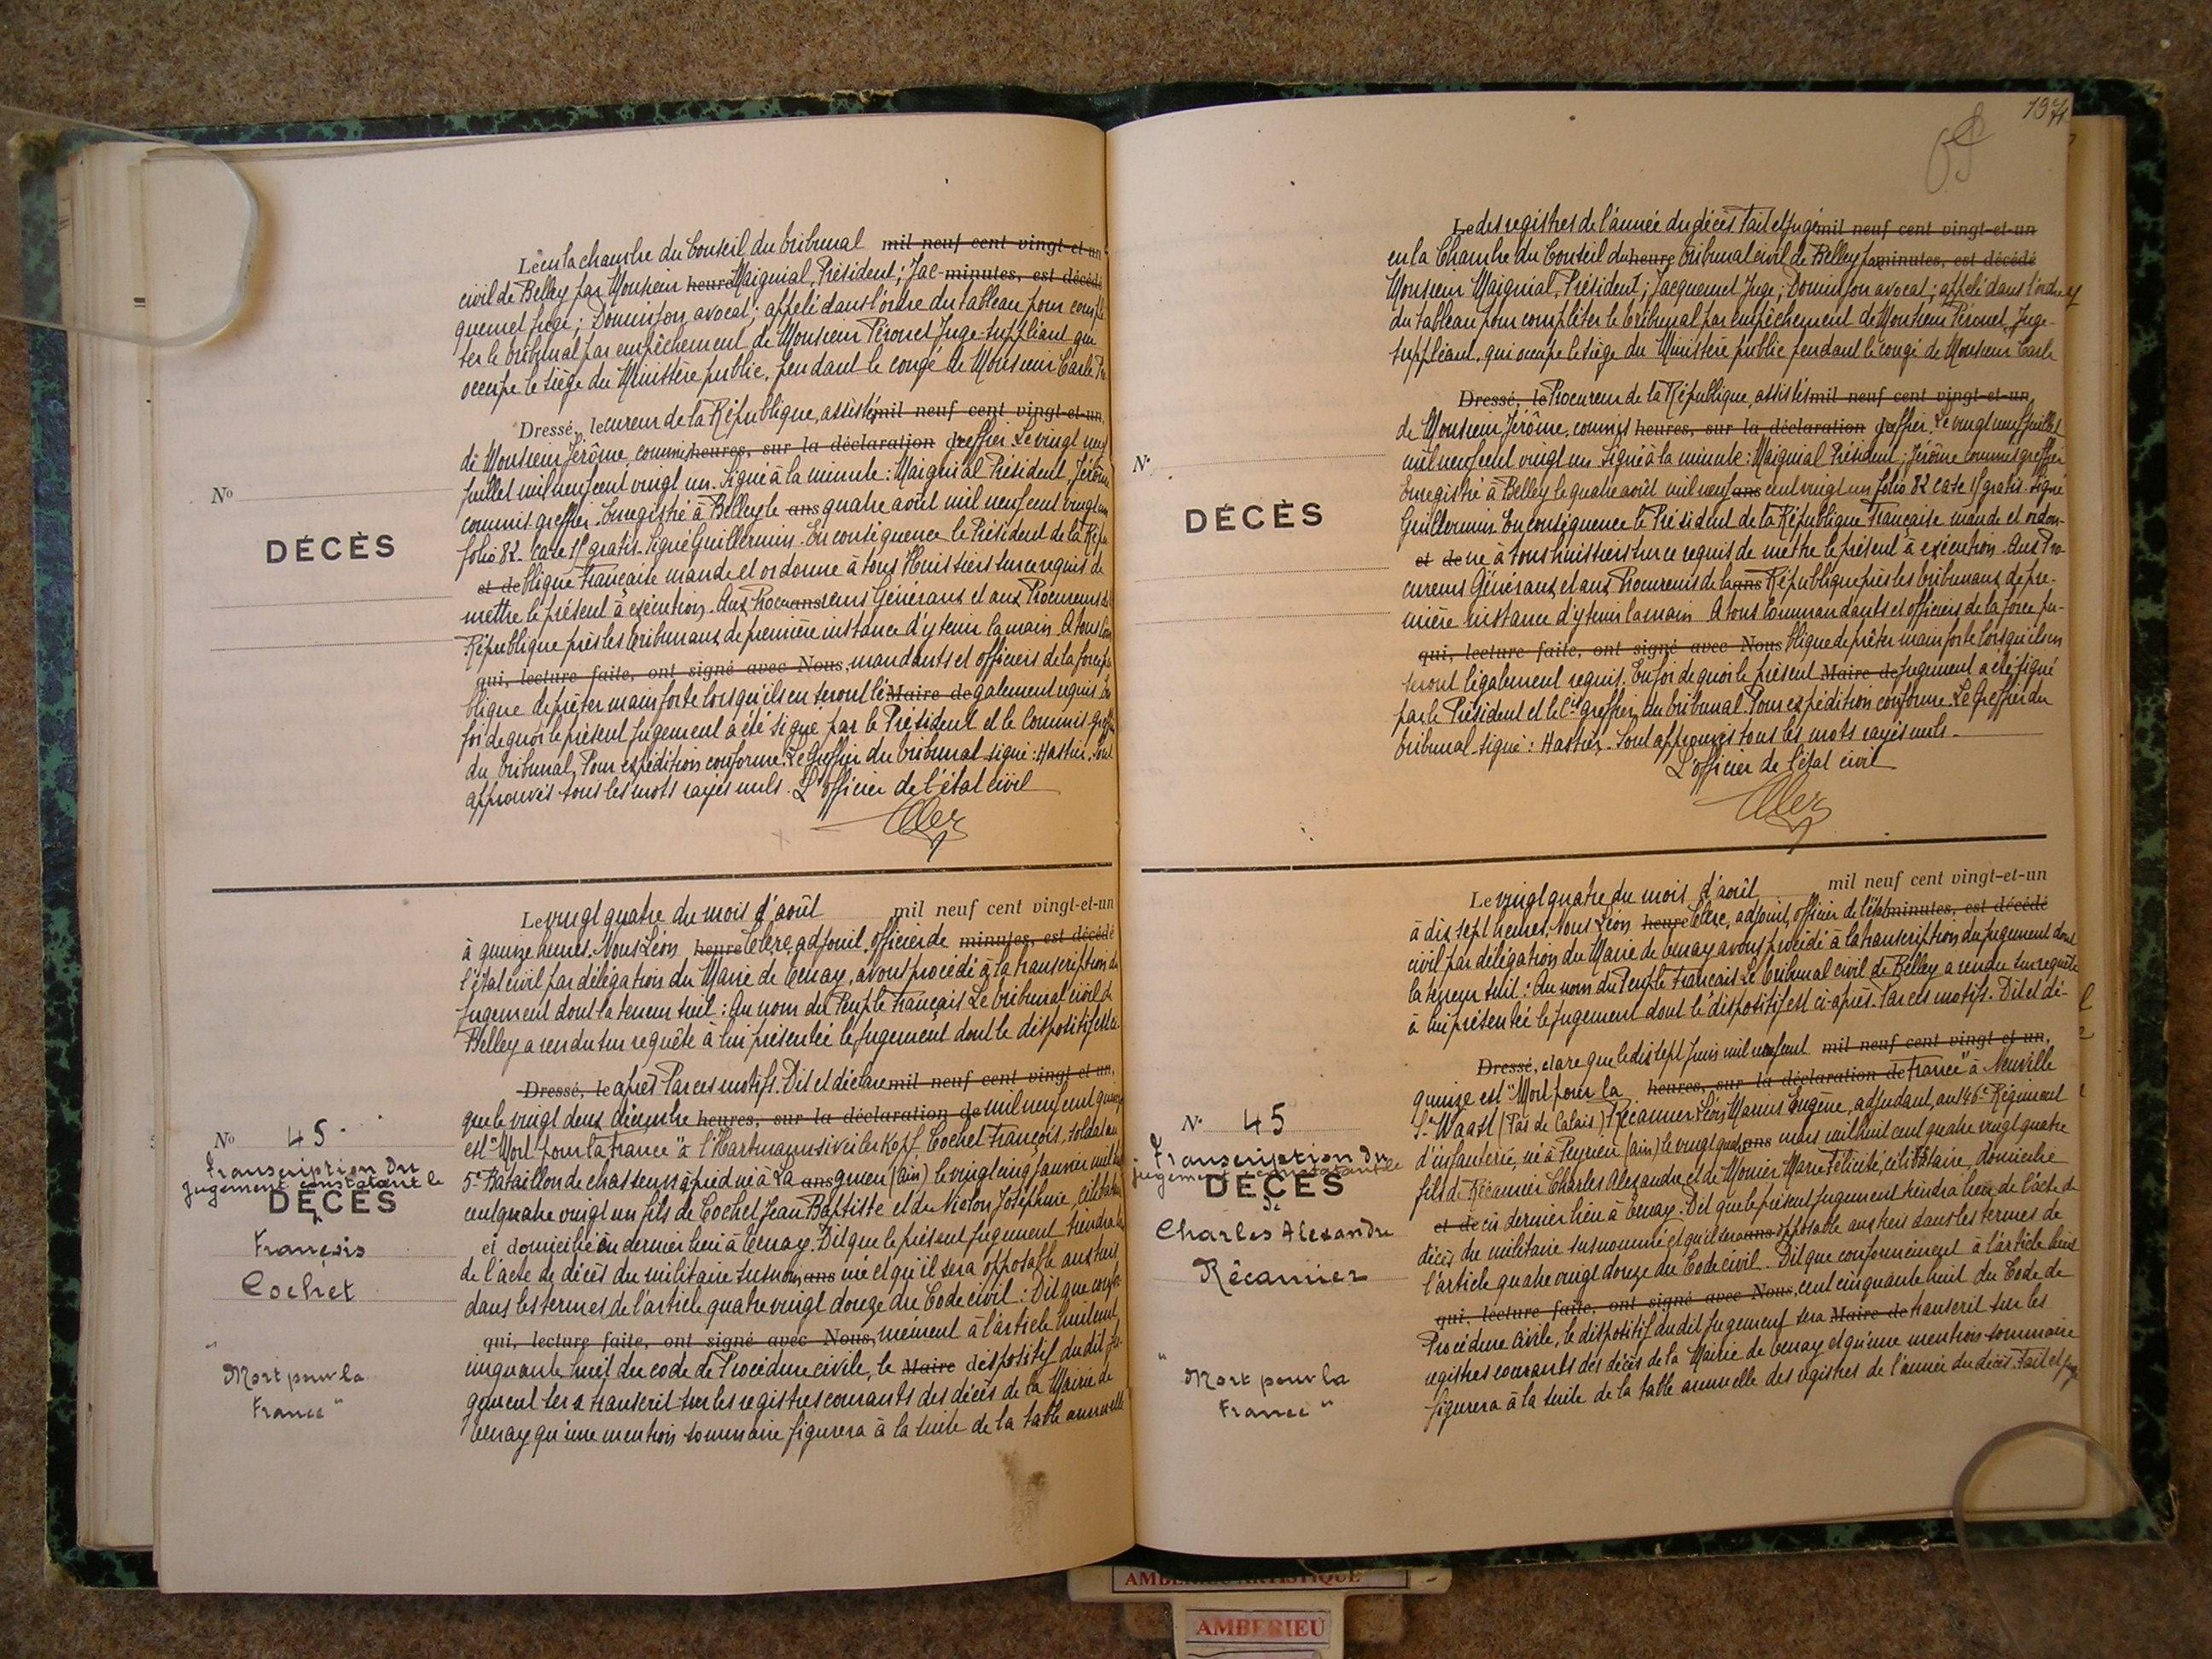 Le en la chambre du Conseil du tribunal mil neuf cent vingt-et-un
civil de Belley par Monsieur heure Maignial, Président; Jac- minutes, est décédé
quemet Juge; Dominjon, avocat; appelé dans l'ordre du tableau pour complé
ter le tribunal par empêchement de Monsieur Péronet Juge-suppléant qui
occupe le siège du Ministère public, pendant le congé de Monsieur Carle Pro
Dressé, le cureur de la République, assistés mil neuf cent vingt-et-un,
de Monsieur Jérôme, commis heures, sur la déclaration de greffier. Le vingt neuf
Juillet mil neuf cent vingt un. Signé à la minute: Maignial Président, Jérôme
commis greffier. Enregistré à Belley le ans quatre août mil neuf cent vingt un
folio 82 - Case gratis - Signé Guillermin - En conséquence le Président de la Répu
et de blique Française mande et ordonne à tous Huissiers sur ce requis de
mettre le présent à exécution. Aux Procu ans reurs Généraux et aux Procureurs de la
République près les tribunaux de première instance d'y tenir la main. A tous Com
qui, lecture faite, ont signé avec Nous, mandants et officiers de la force pu
blique de prêter main forte lorsqu'ils en seront lé Maire de galement requis. En
foi de quoi le présent Jugement a été signé par le Président et le Commis-greffier
du tribunal. Pour expédition conforme. Le Greffier du tribunal signé: Hastier. Sont
approuvés tous les mots rayés nuls. L'officier de l'état civil
Nº
DÉCÈS
Le vingt quatre du mois d'août mil neuf cent vingt-et-un
à quinze heures. Nous Léon heure Clerc, adjoint, officier de minutes, est décédé
l'état civil par délégation du Maire de Tenay, avons procédé à la transcription du
Jugement dont la teneur suit: Au nom du Peuple Français Le tribunal civil de
Belley a rendu sur requête à lui présentée le Jugement dont le dispositif est ci-
Dressé, le après Par ces motifs. Dit et déclare mil neuf cent vingt et un,
que le vingt deux décembre heures, sur la déclaration de mil neuf cent quinze
est "Mort pour la France" à l'Hartmannsweilerkopf, Cochet François, soldat au
5e Bataillon de chasseurs à pied né à La ans gnieu (Ain) le vingt cinq Janvier mil huit
cent quatre vingt un fils de Cochet Jean Baptiste et de Joséphine, célibataire
et domicilié en dernier lieu à Tenay. Dit que le présent Jugement tiendra lieu
de l'acte de décès du militaire susnom ans mé et qu'il sera opposable aux tiers
dans les termes de l'article quatre vingt douze du Code civil: Dit que confor
qui, lecture faite, ont signé avec Nous, mément à l'article huit cent
cinquante huit du code de Procédure civile, le Maire dispositif du dit Ju
gement sera transcrit sur les registres courants des décès de la Mairie de
Tenay qu'une mention sommaire figurera à la suite de la table annuelle
Nº 45.
transcription du
jugement constatant le
DÉCÈS
François
Cochet
"Mort pour la
France"
197
Le des registres de l'année du décès Fait et Jugé mil neuf cent vingt-et-un
en la Chambre du Conseil du heure tribunal civil de Belley par minutes, est décédé
Monsieur Maignial, Président; Jacquemet Juge; Dominjon avocat; appelé dans l'ordre
du tableau pour compléter le tribunal par empêchement de Monsieur Péronet, Juge-
suppléant, qui occupe le siège du Ministère public pendant le congé de Monsieur Carle
Dressé, le Procureur de la République, assistés mil neuf cent vingt-et-un,
de Monsieur Jérôme, commis heures, sur la déclaration de greffier. Le vingt neuf Juillet
mil neuf cent vingt un Signé à la minute: Maignial Président; Jérôme commis greffier
Enregistré à Belley le quatre août mil neuf ans cent vingt un folio 82 case gratis. Signé
Guillermin. En conséquence le Président de la République Française mande et ordon-
et de ne à tous huissiers sur ce requis de mettre le présent à exécution. Aux Pro-
cureurs Généraux et aux Procureurs de la ans République près les tribunaux de pre-
mière instance d'y tenir la main. A tous Commandants et officiers de la force pu-
qui, lecture faite, ont signé avec Nous blique de prêter main forte lorsqu'ils en
seront légalement requis. En foi de quoi le présent Maire de Jugement a été signé
par le Président et le Cis greffier du tribunal. Pour expédition conforme. Le Greffier du
tribunal signé: Hastier. Sont approuvés tous les mots rayés nuls.
L'officier de l'état civil
N°
DÉCÈS
Le vingt quatre du mois d'août mil neuf cent vingt-et-un
à dix sept heures. Nous Léon heure Clerc, adjoint, officier de l'état minutes, est décédé
civil par délégation du Maire de Tenay avons procédé à la transcription du Jugement dont
la teneur suit: Au nom du Peuple Français Le tribunal civil de Belley a rendu sur requête
à lui présentée le Jugement dont le dispositif est ci-après. Par ces motifs. Dit et dé-
Dressé, clare que le dix sept Juin mil neuf cent mil neuf cent vingt et un,
quinze est "Mort pour la heures, sur la déclaration de France" à Neuville
St Waast (Pas de Calais) Récamier Léon Marius Eugène, adjudant, au 146e Régiment
d'infanterie, né à Peyrieu (Ain) le vingt quatre ans mars mil huit cent quatre vingt quatre
fils de Récamier Charles Alexandre et de Monier Marie Félicité, célibataire, domicilié
et de en dernier lieu à Tenay. Dit que le présent Jugement tiendra lieu de l'acte de
décès du militaire susnommé et qu'il sera ans opposable aux tiers dans les termes de
l'article quatre vingt douze du Code civil. Dit que conformément à l'article huit
qui, lecture faite, ont signé avec Nous, cent cinquante huit du Code de
Procédure Civile, le dispositif du dit Jugement sera Maire de transcrit sur les
registres courants des décès de la Mairie de Tenay et qu'une mention sommaire
figurera à la suite de la table annuelle des registres de l'année du décès. Fait et jugé
N° 45
Transcription du
jugement constatant le
DÉCÈS
de
Charles Alexandre
Récamier
"Mort pour la
France"
AMBERIEU ARTISTIQUE
AMBERIEU